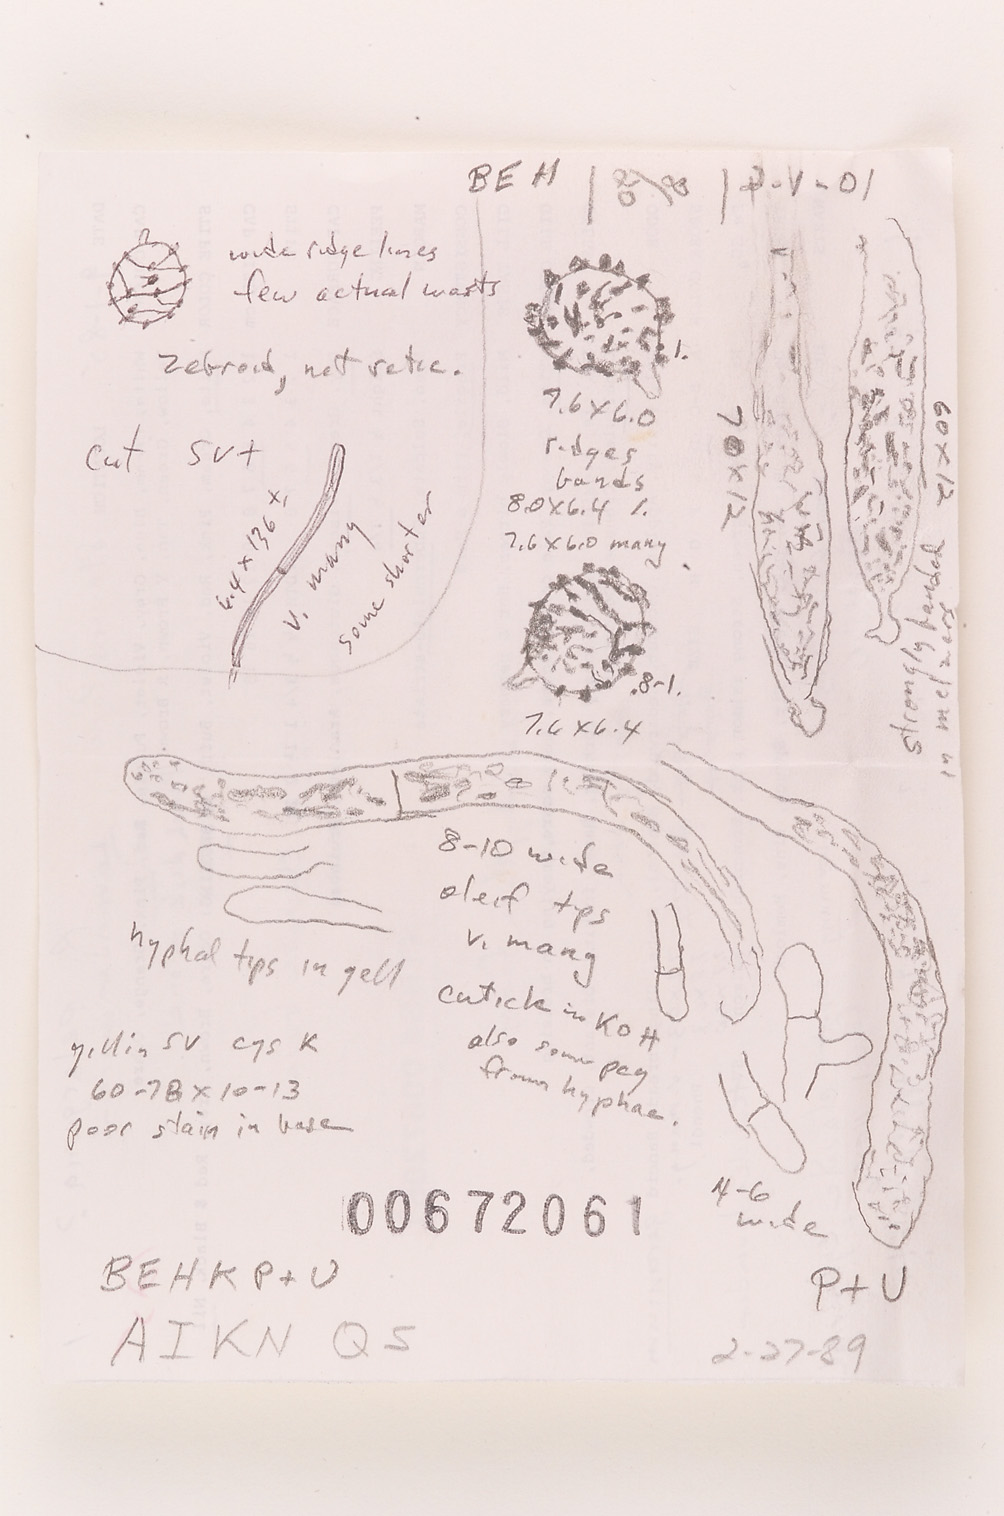 BEH | 88/20 | P-V-01
wide ridge lines
few actual warts
Zebroid, not retic.
Cut SV+
6.4 x 136
v. many
some shorter
.1.
7.6 x 6.0
ridges
bands
8.0 x 6.4
7.6 x 6.0 many
.8-1.
7.6 x 6.4
70 x 12
60 x 12
strongly banded
in melzers
8-10 wide
oleif tips
v. many
hyphal tips in gell
cuticle in KOH
also some peg
from hyphae.
gillin SV cys K
60-78 x 10-13
poor stain in base
4-6
wide
00672061
BEHKP+U
AIKN QS
P+U
2-27-89